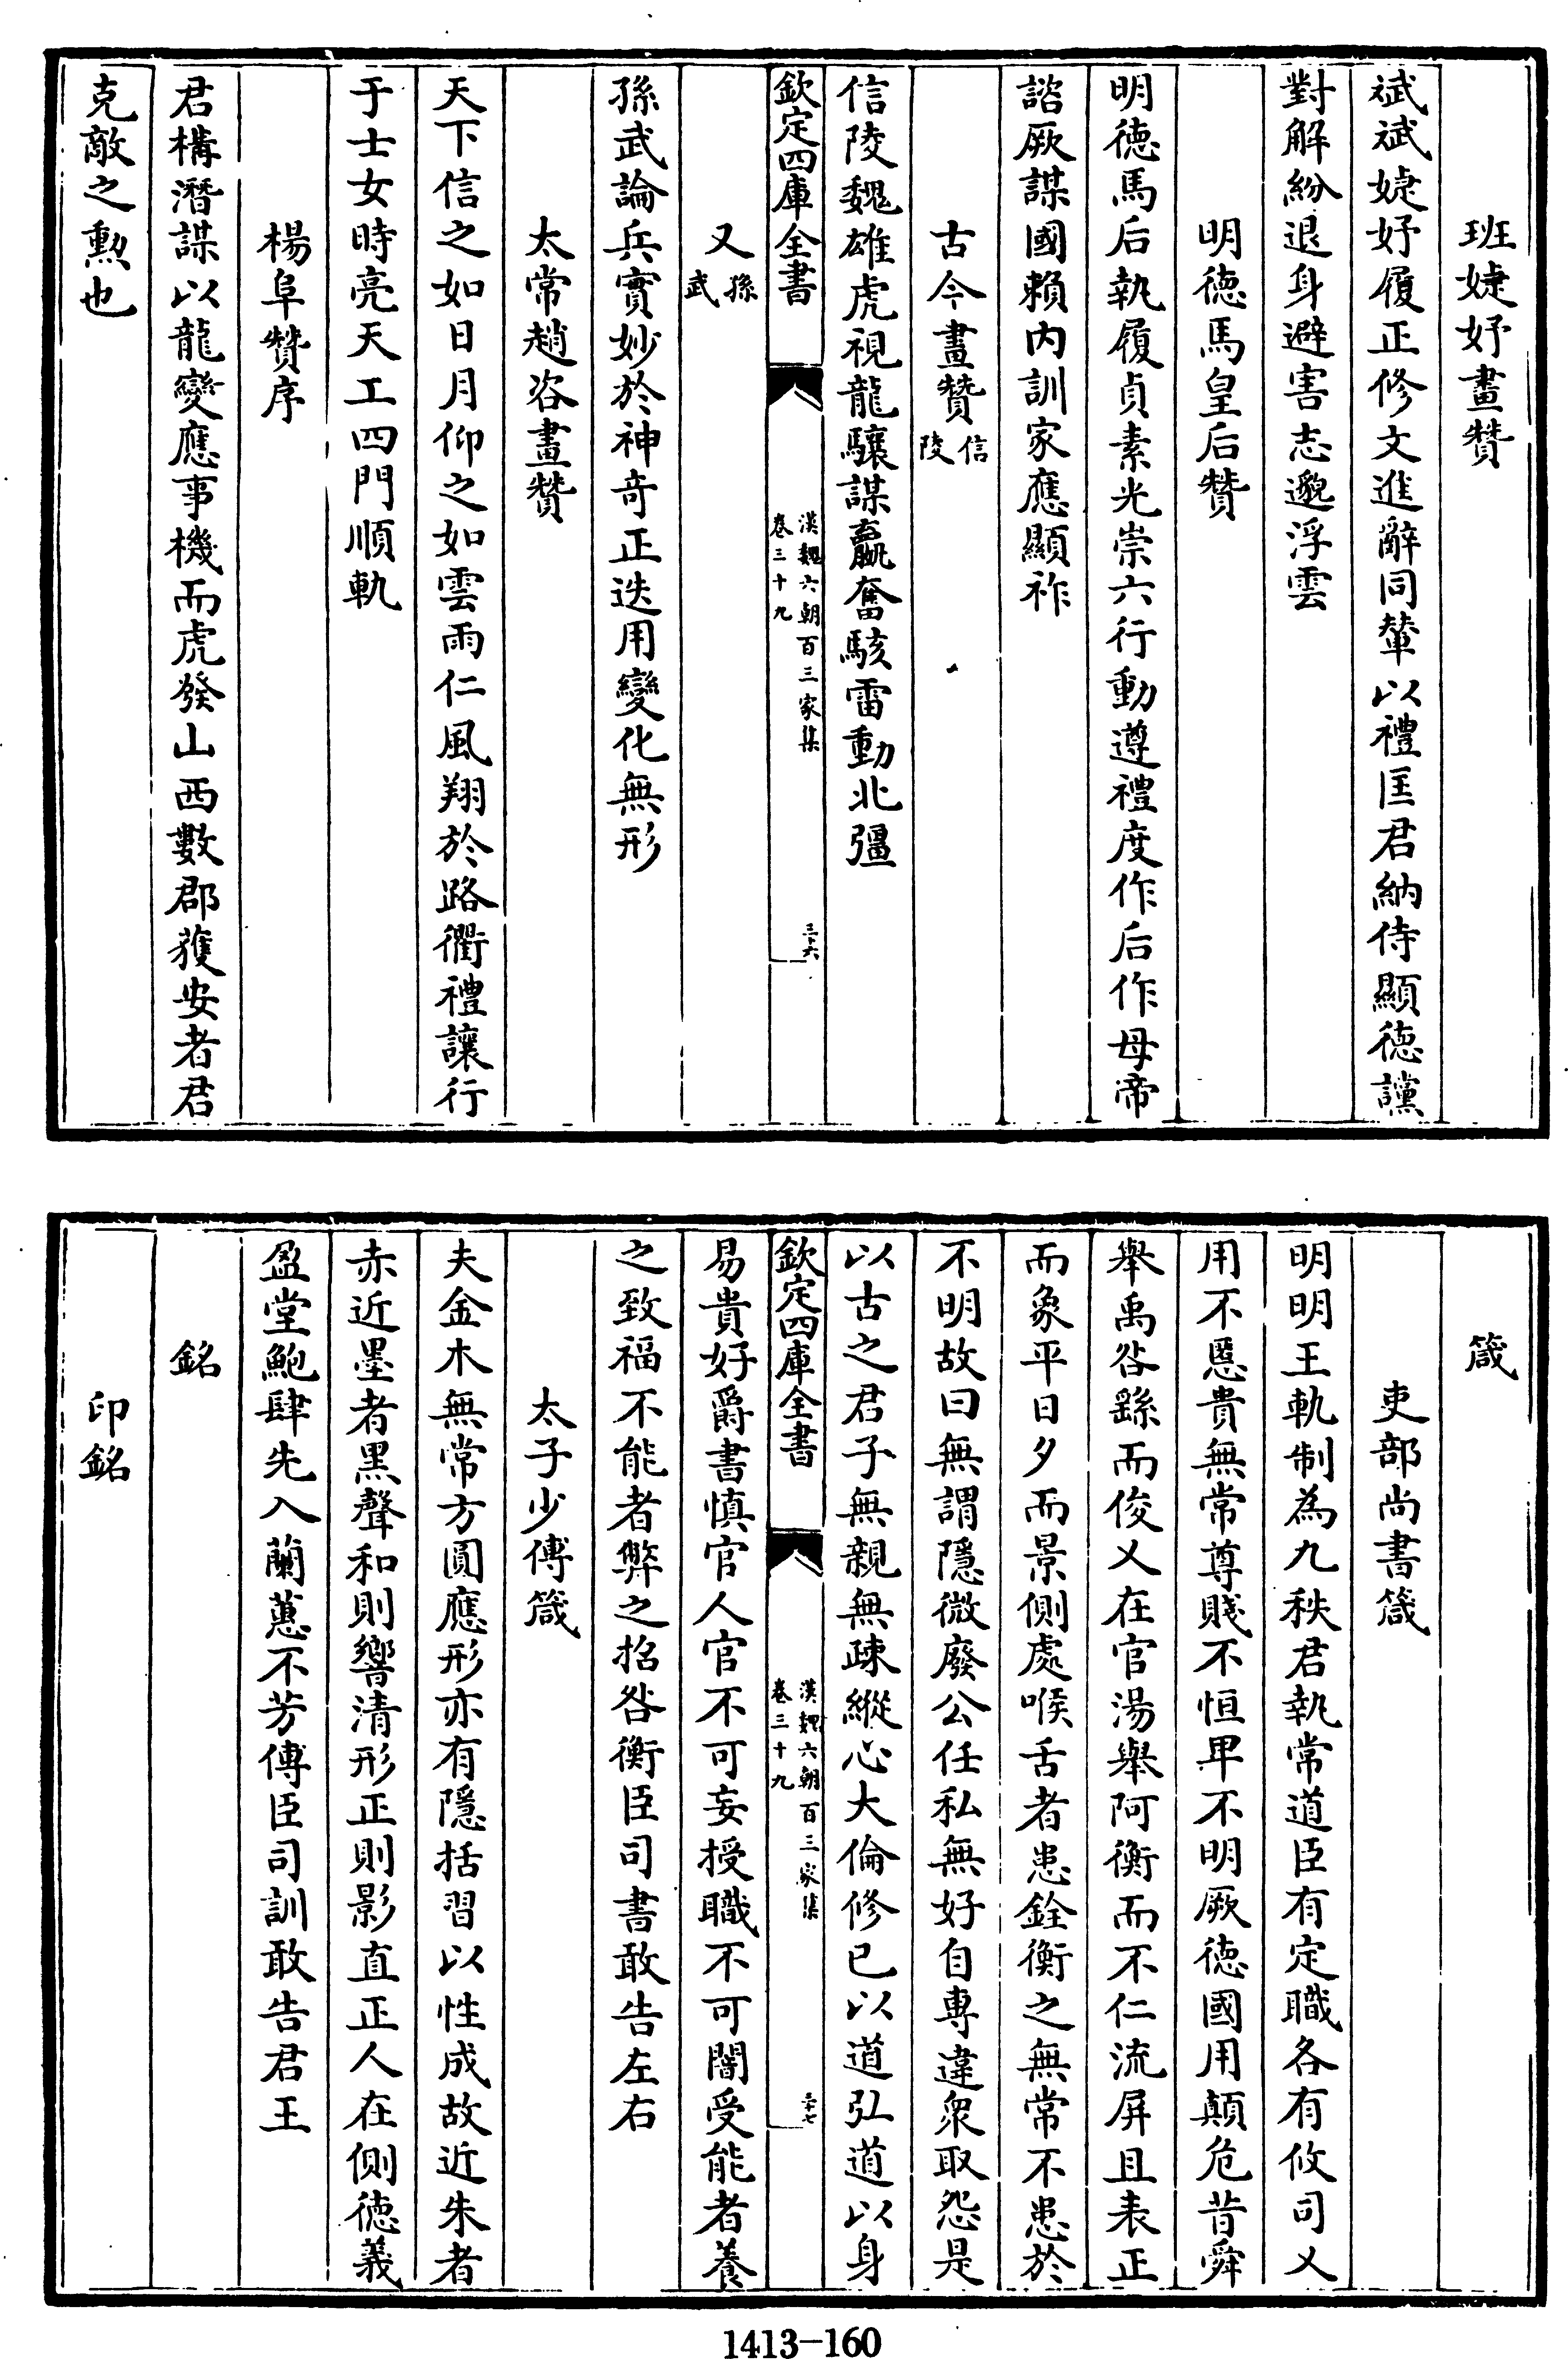 班婕妤畫贊
斌斌婕妤履正修文進辭同輦以禮匡君納侍顯徳讜
對解紛退身避害志邈浮雲
明徳馬皇后贊
明徳馬后執履貞素光崇六行動遵禮度作后作母帝
諮厥謀國賴内訓家應顯祚
古今畫贊信陵
信陵魏雄虎視龍驤謀嬴奮駭雷動北彊
欽定四庫全書
漢魏六朝百三家集
卷三十九
三十六
又孫武
孫武論兵實妙於神奇正迭用變化無形
太常趙咨畫贊
天下信之如日月仰之如雲雨仁風翔於路衢禮讓行
于士女時亮天工四門順軌
楊阜贊序
君構潛謀以龍變應事機而虎發山西數郡獲安者君
克敵之勲也
箴
吏部尚書箴
明明王軌制為九秩君執常道臣有定職各有攸司乂
用不慝貴無常尊賤不恒卑不明厥徳國用顛危昔舜
舉禹咎繇而俊乂在官湯舉阿衡而不仁流屏且表正
而象平日夕而景側處喉舌者患銓衡之無常不患於
不明故曰無謂隱微廢公任私無好自專違衆取怨是
以古之君子無親無疎縱心大倫修已以道弘道以身
欽定四庫全書
漢魏六朝百三家集
卷三十九
三十七
易貴好爵書慎官人官不可妄授職不可闇受能者養
之致福不能者弊之招咎衡臣司書敢告左右
太子少傅箴
夫金木無常方圓應形亦有隱括習以性成故近朱者
赤近墨者黑聲和則響清形正則影直正人在側徳義
盈堂鮑肆先入蘭蕙不芳傅臣司訓敢告君王
銘
印銘
1413-160